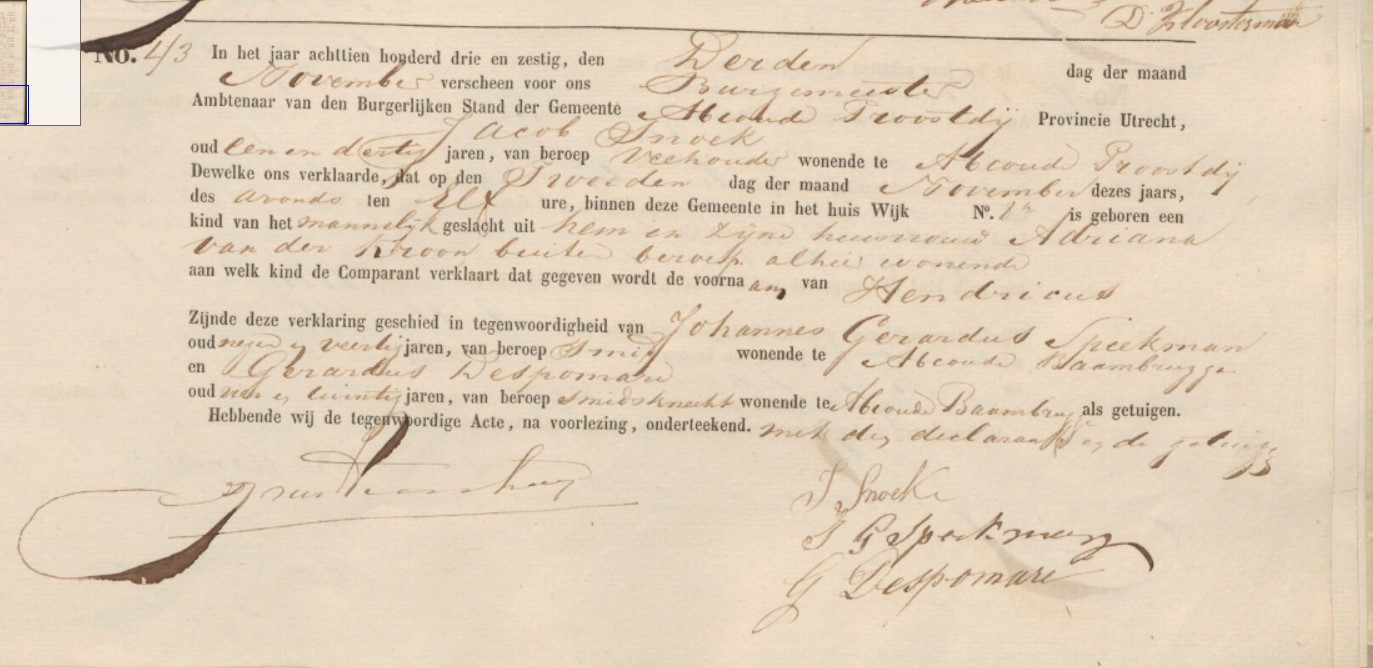 D. Kloosterman
No. 43 In het jaar achttien honderd drie en zestig, den Derden dag der maand
November verscheen voor ons Burgemeester
Ambtenaar van den Burgerlijken Stand der Gemeente Abcoude Proostdij Provincie Utrecht,
Jacob Snoek
oud een en dertig jaren, van beroep Veehouder wonende te Abcoude Proostdij
Dewelke ons verklaarde, dat op den Tweeden dag der maand November dezes jaars,
des avonds ten Elf ure, binnen deze Gemeente in het huis Wijk No. 8a is geboren een
kind van het mannelijk geslacht uit hem en zijne huisvrouw Adriana
van der Kroon buiten beroep alhier wonende
aan welk kind de Comparant verklaart dat gegeven wordt de voornaam van Hendricus
Zijnde deze verklaring geschied in tegenwoordigheid van Johannes Gerardus Speekman
oud negen en veertig jaren, van beroep Smid wonende te Abcoude Baambrugge
en Gerardus Despomare
oud en twintig jaren, van beroep smidsknecht wonende te Abcoude Baambrug als getuigen.
Hebbende wij de tegenwoordige Acte, na voorlezing, onderteekend. met den declarant en de getuigen
J Snoek
J G Speekman
G Despomare